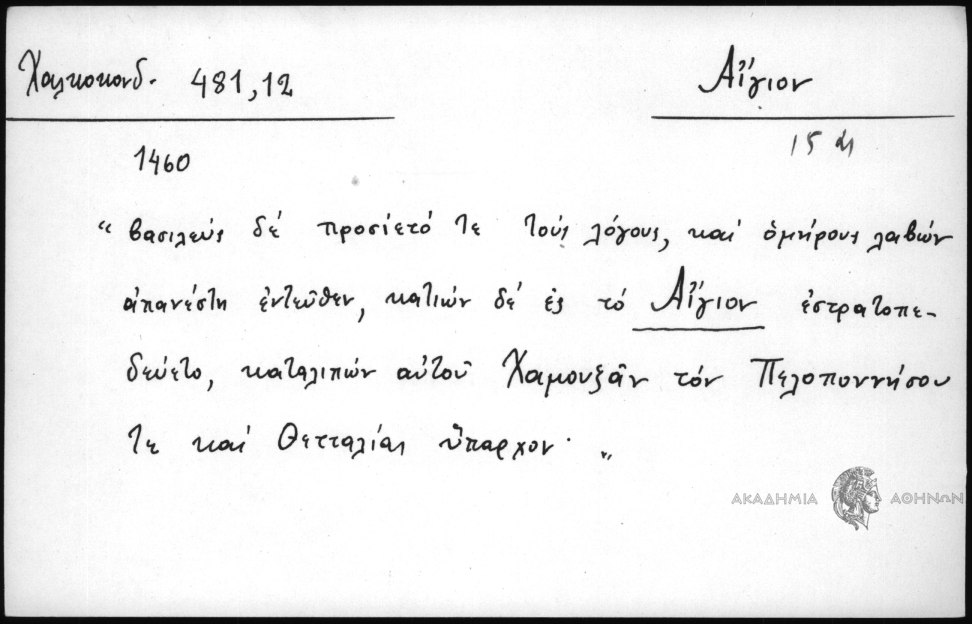 Χαλκοκονδ. 481,12
Αἴγιον
1460
15
“ βασιλεύς δέ προσίετό τε τούς λόγους, καί ὁμήρους λαβών
ἀπανέστη ἐντεῦθεν, κατιών δέ ἐς τό Αἴγιον ἐστρατοπε-
δεύετο, καταλιπών αὐτοῦ Χαμουξᾶν τόν Πελοποννήσου
τε καί Θετταλίας ὕπαρχον· „
ΑΚΑΔΗΜΙΑ ΑΘΗΝΩΝ